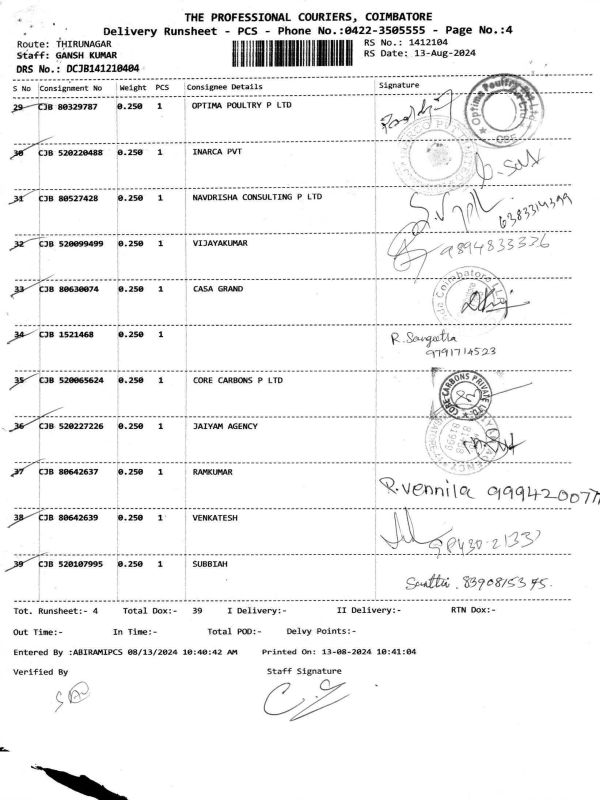 THE PROFESSIONAL COURIERS, COIMBATORE
Delivery Runsheet - PCS - Phone No.:0422-3505555 - Page No.:4
Route: THIRUNAGAR
RS No.: 1412104
Staff: GANSH KUMAR
RS Date: 13-Aug-2024
DRS No.: DCJB141210404
S No Consignment No Weight PCS Consignee Details Signature
29 CJB 80329787 0.250 1 OPTIMA POULTRY P LTD
30 CJB 520220488 0.250 1 INARCA PVT
31 CJB 80527428 0.250 1 NAVDRISHA CONSULTING P LTD 6383314399
32 CJB 520099499 0.250 1 VIJAYAKUMAR 9894833336
33 CJB 80630074 0.250 1 CASA GRAND
34 CJB 1521468 0.250 1 R. Sangeetha
9791714523
35 CJB 520065624 0.250 1 CORE CARBONS P LTD CORE CARBONS PRIVATE LTD.
36 CJB 520227226 0.250 1 JAIYAM AGENCY
37 CJB 80642637 0.250 1 RAMKUMAR R. Vennila
38 CJB 80642639 0.250 1 VENKATESH
39 CJB 520107995 0.250 1 SUBBIAH 8390815345.
Tot. Runsheet:- 4 Total Dox:- 39 I Delivery:- II Delivery:- RTN Dox:-
Out Time:- In Time:- Total POD:- Delvy Points:-
Entered By :ABIRAMIPCS 08/13/2024 10:40:42 AM Printed On: 13-08-2024 10:41:04
Verified By Staff Signature